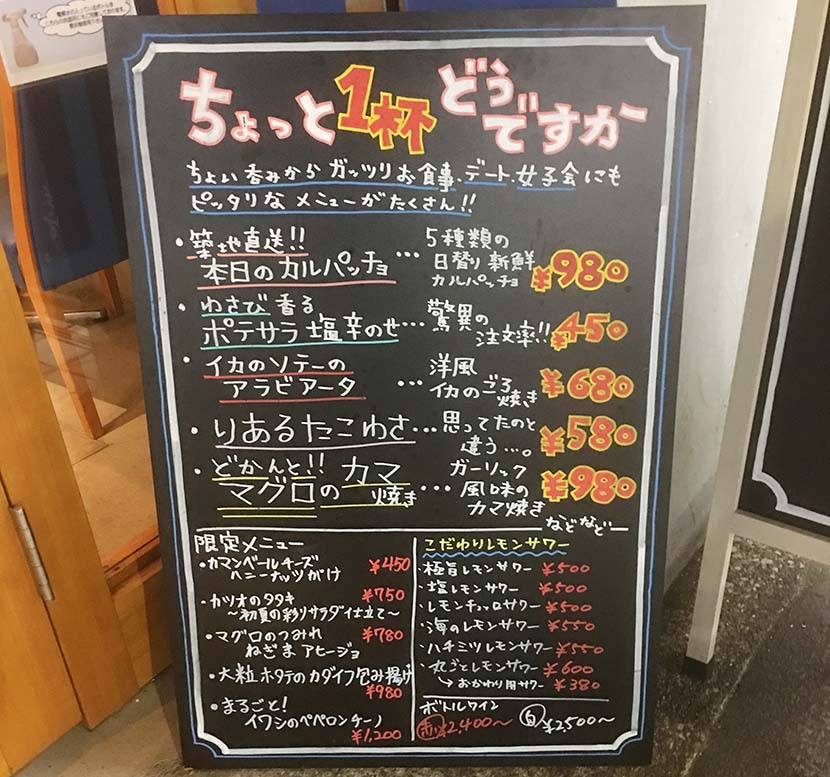 ちょっと1杯どうですかー
ちょい呑みからガッツリお食事、デート、女子会にも
ピッタリなメニューがたくさん!!
・築地直送!!
本日のカルパッチョ…5種類の
日替り新鮮
カルパッチョ
¥980
・わさび香る
ポテサラ塩辛のせ…驚異の
注文率!!
¥450
・イカのソテーの
アラビアータ…洋風
イカのごろ焼き
¥680
・りあるたこわさ…思ってたのと
違う…。
¥580
・どかんと!!カマ
マグロの焼き…ガーリック
風味の
カマ焼き
¥980
などなど
限定メニュー
・カマンベールチーズ
ハニーナッツがけ
¥450
・カツオのタタキ
¥750
〜初夏の彩りサラダ仕立て〜
・マグロのつみれ
¥780
ねぎまアヒージョ
・大粒ホタテのカダイフ包み揚げ
¥980
・まるごと!
イワシのペペロンチーノ
¥1,200
こだわりレモンサワー
・極旨レモンサワー ¥500
・塩レモンサワー ¥500
・レモンチェッロサワー ¥500
・海のレモンサワー ¥550
・ハチミツレモンサワー ¥550
・丸ごとレモンサワー ¥600
↳おかわり用サワー ¥380
ボトルワイン
赤¥2,400〜 白¥2,500〜